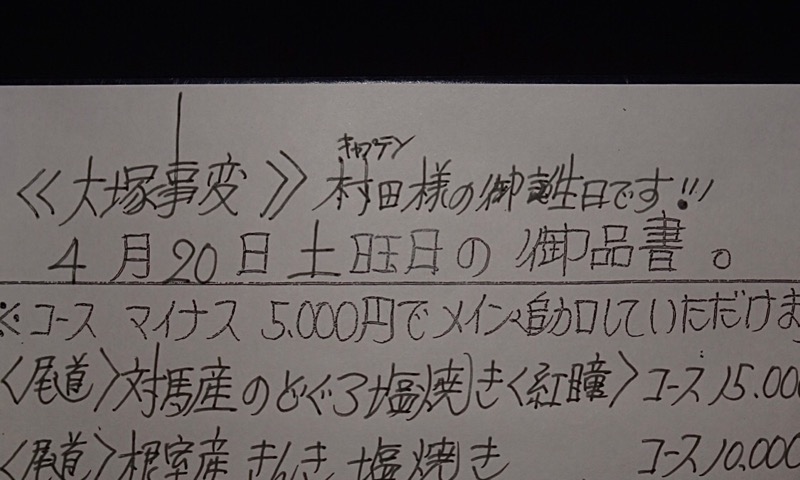 キャプテン
《大塚事変》村田様の御誕生日です!!!
4月20日土旺日の御品書。
※コース マイナス 5,000円でメイン追加していただけま
〈尾道〉対馬産のどぐろ塩焼き〈紅瞳〉コース15.000
〈尾道〉根室産きんき塩焼き コース10,000